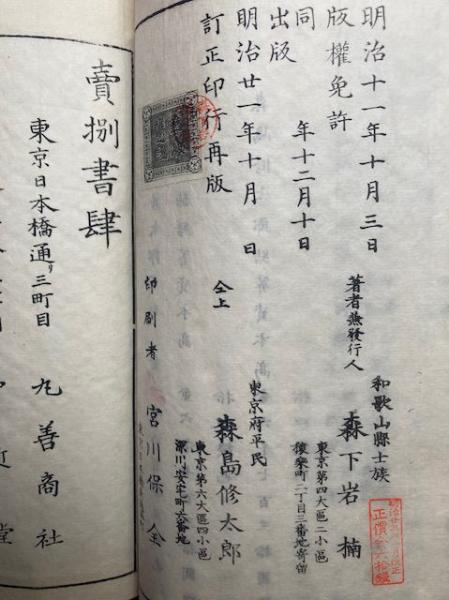 明治十一年十月三日
版權免許
同　年十二月十日
出版
明治廿一年十月　日
訂正印行再版
著者兼發行人
和歌山縣士族
森下岩楠
東京第四大區二小區
猿樂町二丁目三番地寄留
仝上
東京府平民
森島修太郎
東京第六大區四小區
深川安宅町六番地
印刷者
宮川保全
正價金六拾錢
賣捌書肆
東京日本橋通リ三町目
丸善商社